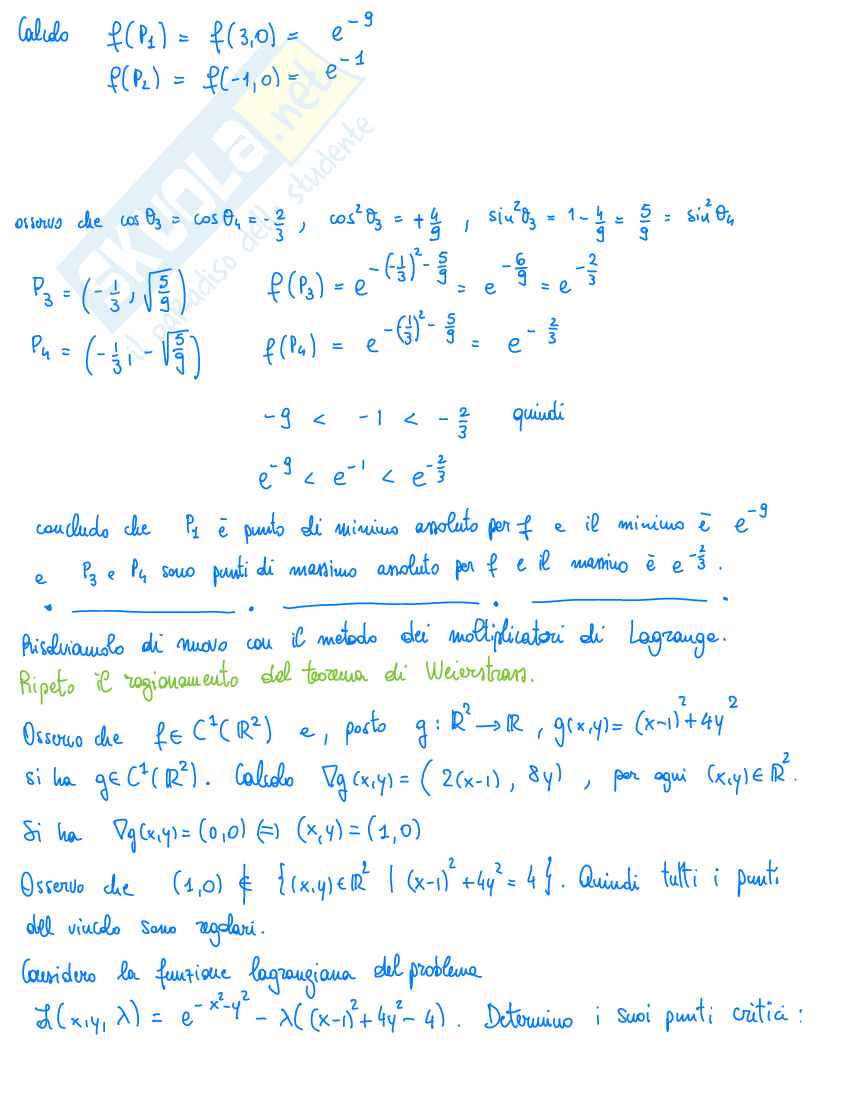 Calcolo f(P₁) = f(3,0) = e^{-9}
f(P₂) = f(-1,0) = e^{-1}
SKUOLA.net
il paradiso dello studente
osservo che cos θ₃ = cos θ₄ = -2/3 , cos²θ₃ = +4/9 , sin²θ₃ = 1 - 4/9 = 5/9 = sin²θ₄
P₃ = (-1/3, √(5/9)) f(P₃) = e^{-(-1/3)² - 5/9} = e^{-6/9} = e^{-2/3}
P₄ = (-1/3, -√(5/9)) f(P₄) = e^{-(1/3)² - 5/9} = e^{-2/3}
-9 < -1 < -2/3 quindi
e^{-9} < e^{-1} < e^{-2/3}
concludo che P₁ è punto di minimo assoluto per f e il minimo è e^{-9}
e P₃ e P₄ sono punti di massimo assoluto per f e il massimo è e^{-2/3}.
Risolviamolo di nuovo con il metodo dei moltiplicatori di Lagrange.
Ripeto il ragionamento del teorema di Weierstrass.
Osservo che f ∈ C¹(ℝ²) e, posto g : ℝ² → ℝ , g(x,y) = (x-1)² + 4y²
si ha g ∈ C¹(ℝ²). Calcolo ∇g(x,y) = ( 2(x-1) , 8y) , per ogni (x,y) ∈ ℝ².
Si ha ∇g(x,y) = (0,0) ⇔ (x,y) = (1,0)
Osservo che (1,0) ∉ {(x,y) ∈ ℝ² | (x-1)² + 4y² = 4}. Quindi tutti i punti
del vincolo sono regolari.
Considero la funzione lagrangiana del problema
ℒ(x,y, λ) = e^{-x²-y²} - λ((x-1)² + 4y² - 4). Determino i suoi punti critici :